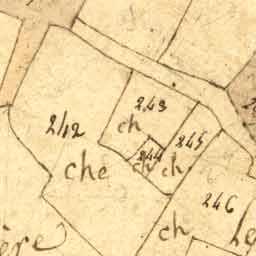 243
ch
242
che
244
ch
245
ch
246
ch
ère